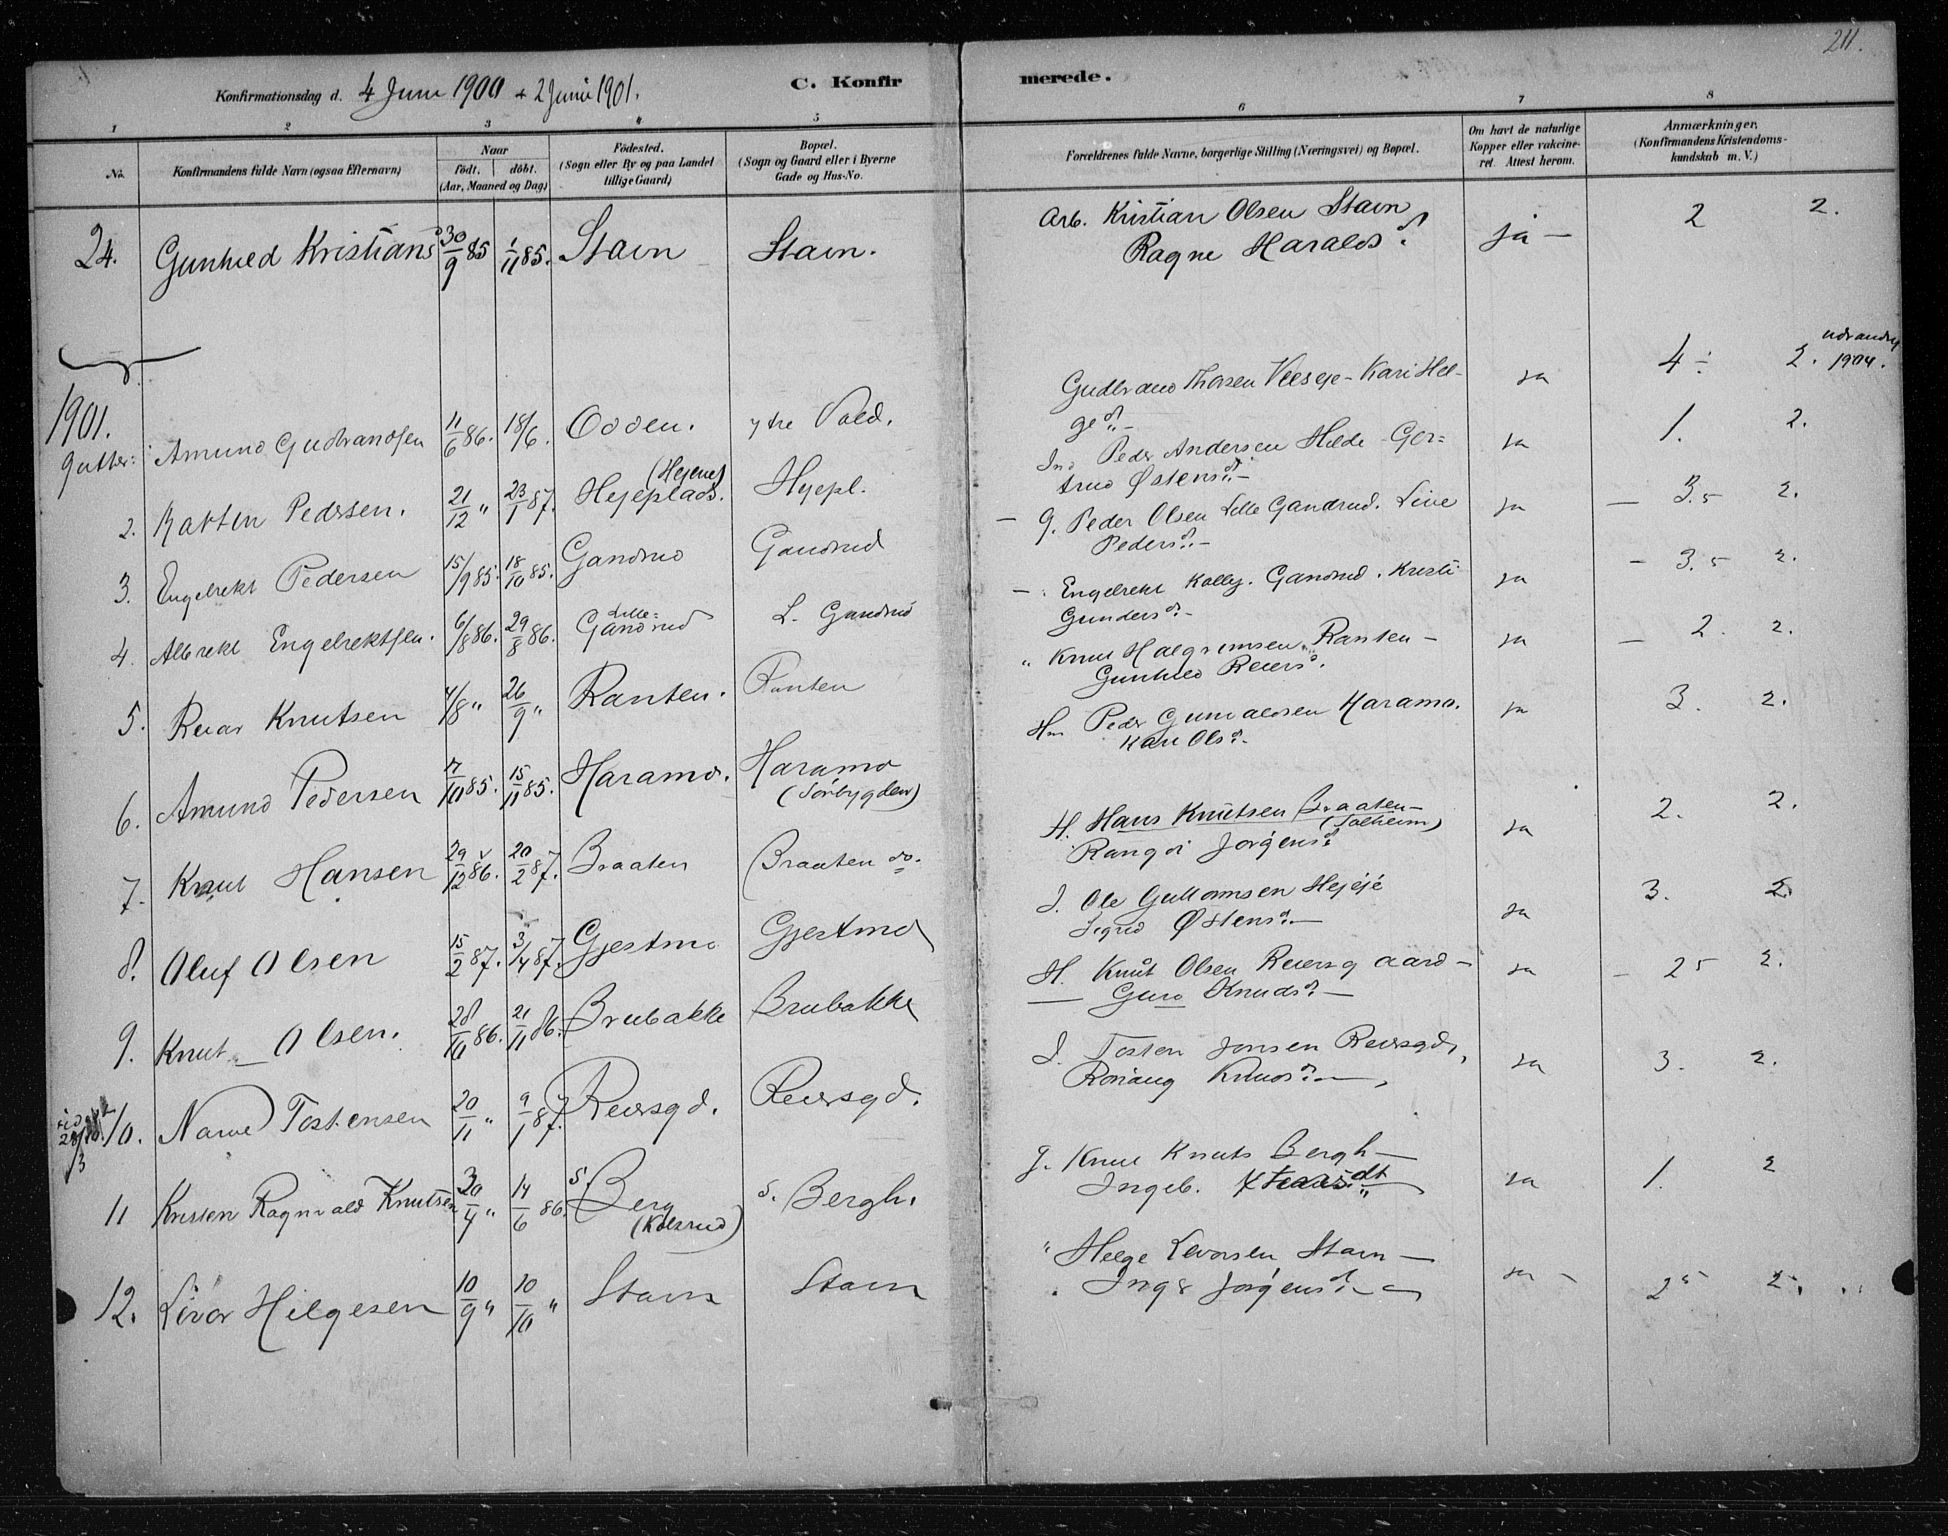 211.
Konfirmationsdag d. 4 Juni 1900 + 2 Juni 1901.
C. Konfirmerede.
1 2 3 4 5 6 7 8
No.
Konfirmandens fulde Navn (ogsaa Efternavn)
Naar
födt. döbt.
(Aar, Maaned og Dag)
Födested.
(Sogn eller By og paa Landet
tillige Gaard)
Bopæl.
(Sogn og Gaard eller i Byerne
Gade og Hus-No.
Forældrenes fulde Navne, borgerlige Stilling (Næringsvei) og Bopæl.
Om havt de naturlige
Kopper eller vakcine-
ret. Attest herom.
Anmærkninger,
(Konfirmandens Kristendoms-
kundskab m. V.)
24. Gunhild Kristiansd 30/9 85 1/11 85. Stavn Stavn. Arb. Kristian Olsen Stavn ja — 2 2.
Ragne Haralds d.
1901.
Gutter: Amund Gudbrandsen 11/6 86. 18/6. Odden. ytre Vold. Gudbrand Thorsen - Kari Hel- ja 4 ÷ 2. 1904.
ge d. -
2. Pedersen. 21/12 " 23/1 87. Hejeplads. Hejepl. Ind Peder Andersen - Ger= ja 1. 2.
trud Østens d. -
3. Engelrekt Pedersen 15/9 85. 18/10 85. Gandrud Gandrud — G. Peder Olsen Lille Gandrud. Live ja — 3.5 2.
Peders d. -
4. Albrekt Engelrektsen. 6/8 86. 29/8 86. Lille= Gandrud L. Gandrud — Engelrekt Kolbj. Gandrud. Kristi ja - 3.5 2.
Gunders d. -
5. Reiar Knutsen 4/8 " 26/9 " Ranten. Ranten " Knut Halgrimsen Ranten - ja — 2. 2.
Gunhild Reiers d.
6. Amund Pedersen 17/10 85. 15/11 85. Haramo. Haramo Hm Peder Haramo. ja 3. 2.
(Sørbygden) Kari Ols d.
7. Knut Hansen 29/12 86. 20/2 87. Braaten Braaten do. H. Hans Knutsen Braaten - ja 2. 2.
(Solheim)
Rangdi Jørgens d.
8. Oluf Olsen 15/2 87. 3/4 87. Gjestmo Gjestmo I. Ole ja 3. 2
Sigrid Østens d. —
9. Knut Olsen. 28/10 86. 21/11 86. Brubakke Brubakke H. Knut Olsen Reiersgaard - ja — 2 5 2.
Guro Knuds d. —
10. Narve Tostensen 20/11 " 9/1 87. Reiersgd. Reiersgd. I. Tosten Jonsen Reiersgd, ja 3. 2.
Knuds d. —
11 Kristen Ragnvald Knutsen 30/4 " 14/6 86. S. Berg S. Bergh. G. Knut Knuts Bergh — ja 1. 2
(Kolsrud) Ingeb.
12. Livor Helgesen 10/9 " 10/10 " Stavn Stavn " Helge Levorsen Stavn — ja - 2 5 2.
Inge Jørgens d. —